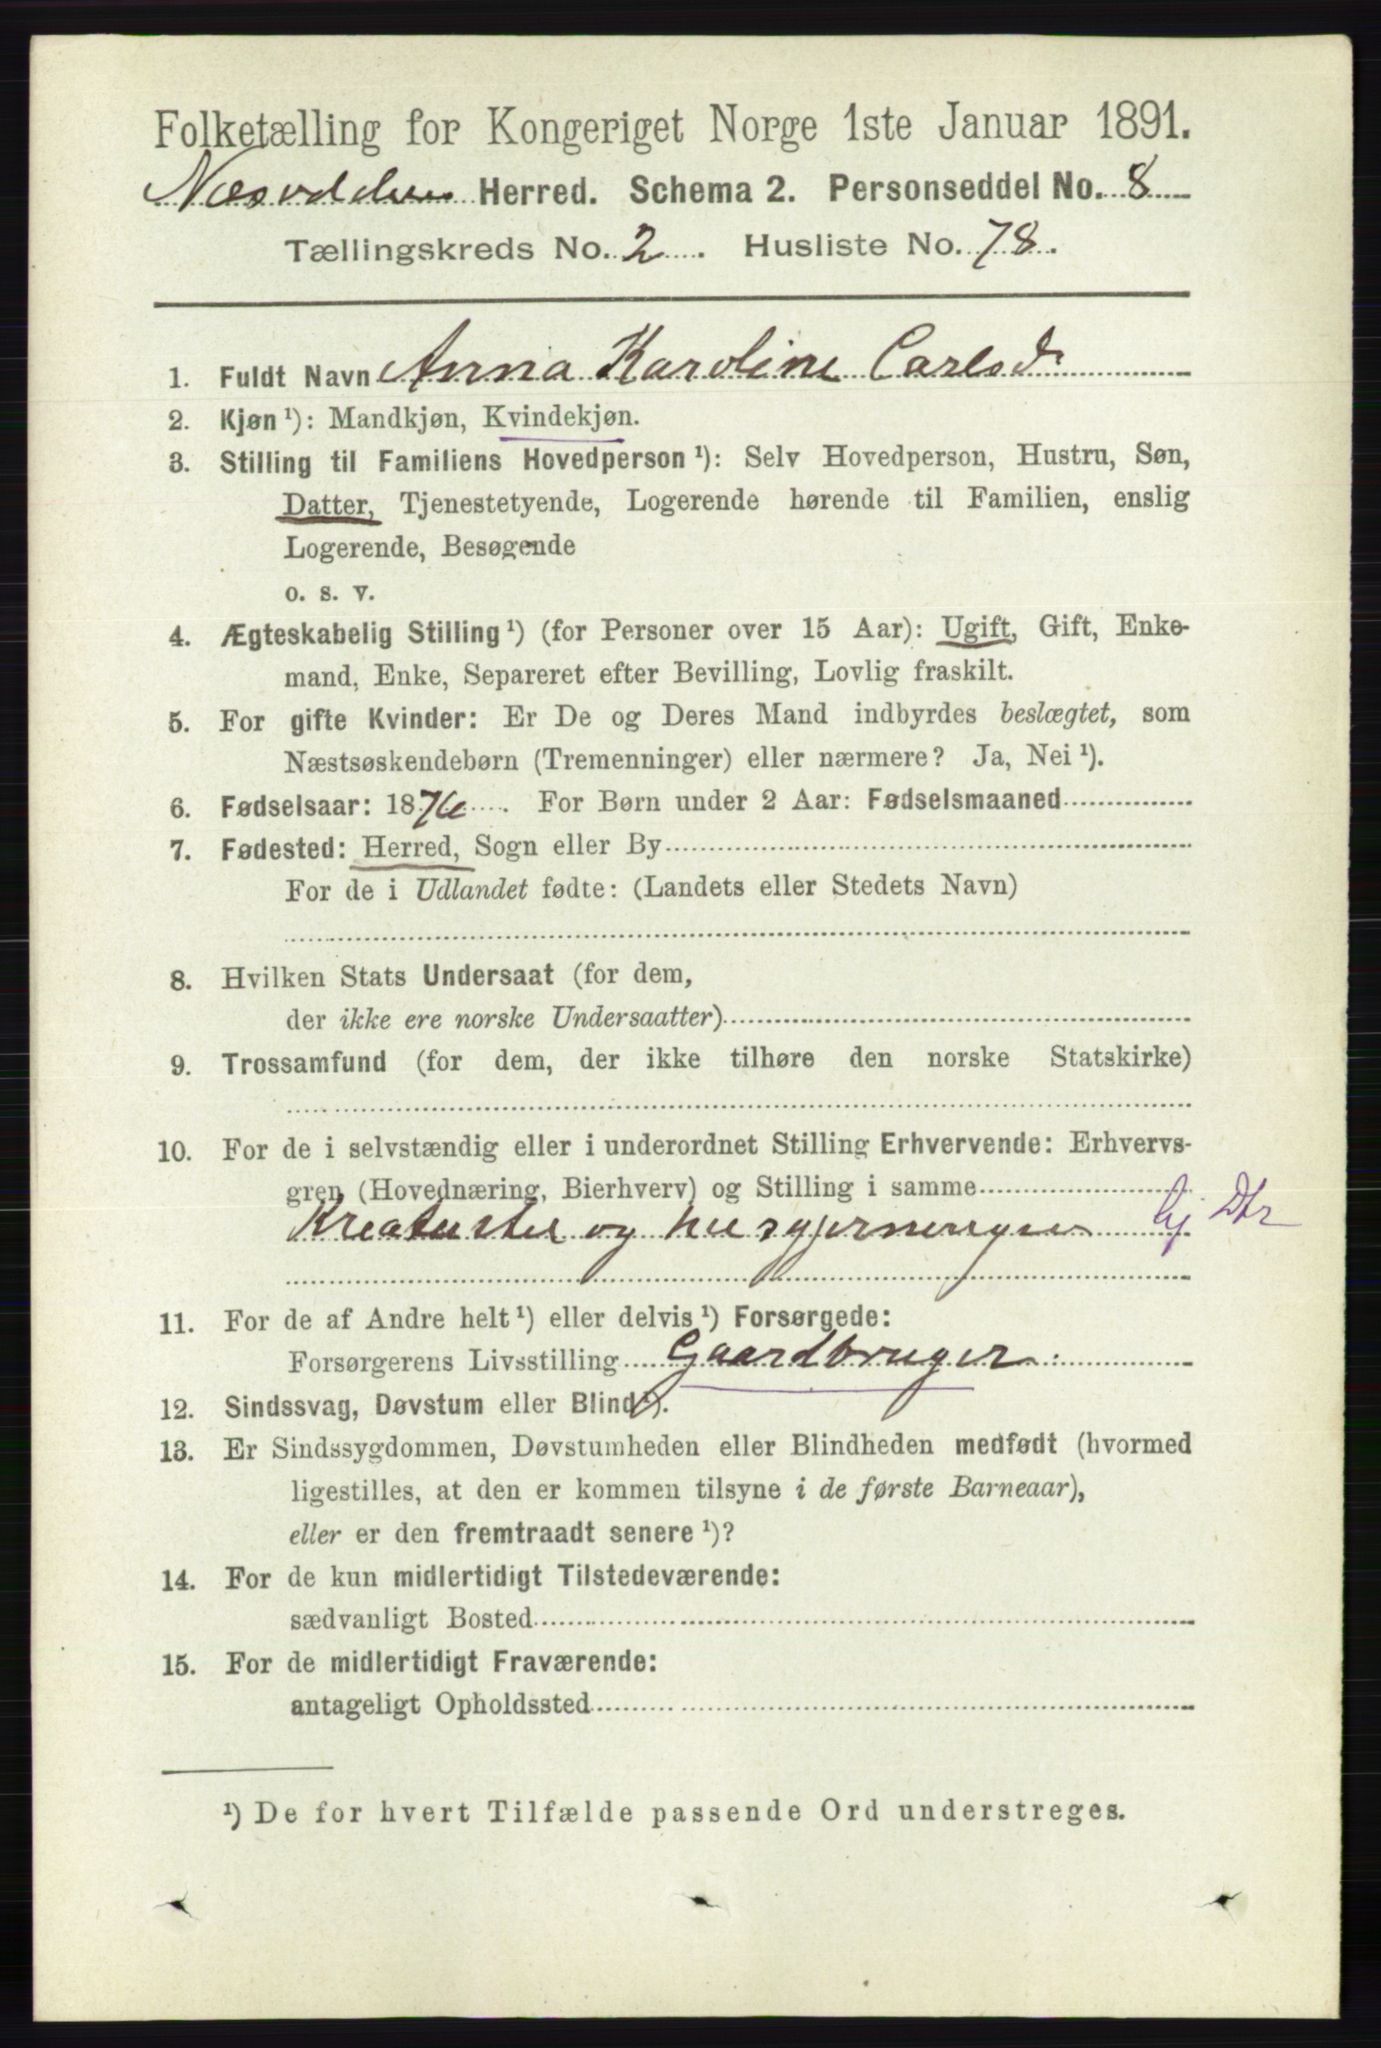 Folketælling for Kongeriget Norge 1ste Januar 1891.
Næsodden Herred. Schema 2. Personseddel No. 8
Tællingskreds No. 2. Husliste No. 78.
1. Fuldt Navn Anna Karoline Carlsd.
2. Kjøn ¹): Mandkjøn, Kvindekjøn.
3. Stilling til Familiens Hovedperson ¹): Selv Hovedperson, Hustru, Søn,
Datter, Tjenestetyende, Logerende hørende til Familien, enslig
Logerende, Besøgende
o. s. v.
4. Ægteskabelig Stilling ¹) (for Personer over 15 Aar): Ugift, Gift, Enke-
mand, Enke, Separeret efter Bevilling, Lovlig fraskilt.
5. For gifte Kvinder: Er De og Deres Mand indbyrdes beslægtet, som
Næstsøskendebørn (Tremenninger) eller nærmere? Ja, Nei ¹).
6. Fødselsaar: 1876. For Børn under 2 Aar: Fødselsmaaned
7. Fødested: Herred, Sogn eller By
For de i Udlandet fødte: (Landets eller Stedets Navn)
8. Hvilken Stats Undersaat (for dem,
der ikke ere norske Undersaatter)
9. Trossamfund (for dem, der ikke tilhøre den norske Statskirke)
10. For de i selvstændig eller i underordnet Stilling Erhvervende: Erhvervs-
gren (Hovednæring, Bierhverv) og Stilling i samme
Kreaturstel og husgjerninger Dtr
11. For de af Andre helt ¹) eller delvis ¹) Forsørgede:
Forsørgerens Livsstilling Gaardbruger
12. Sindssvag, Døvstum eller Blind ¹).
13. Er Sindssygdommen, Døvstumheden eller Blindheden medfødt (hvormed
ligestilles, at den er kommen tilsyne i de første Barneaar),
eller er den fremtraadt senere ¹)?
14. For de kun midlertidigt Tilstedeværende:
sædvanligt Bosted
15. For de midlertidigt Fraværende:
antageligt Opholdssted
¹) De for hvert Tilfælde passende Ord understreges.